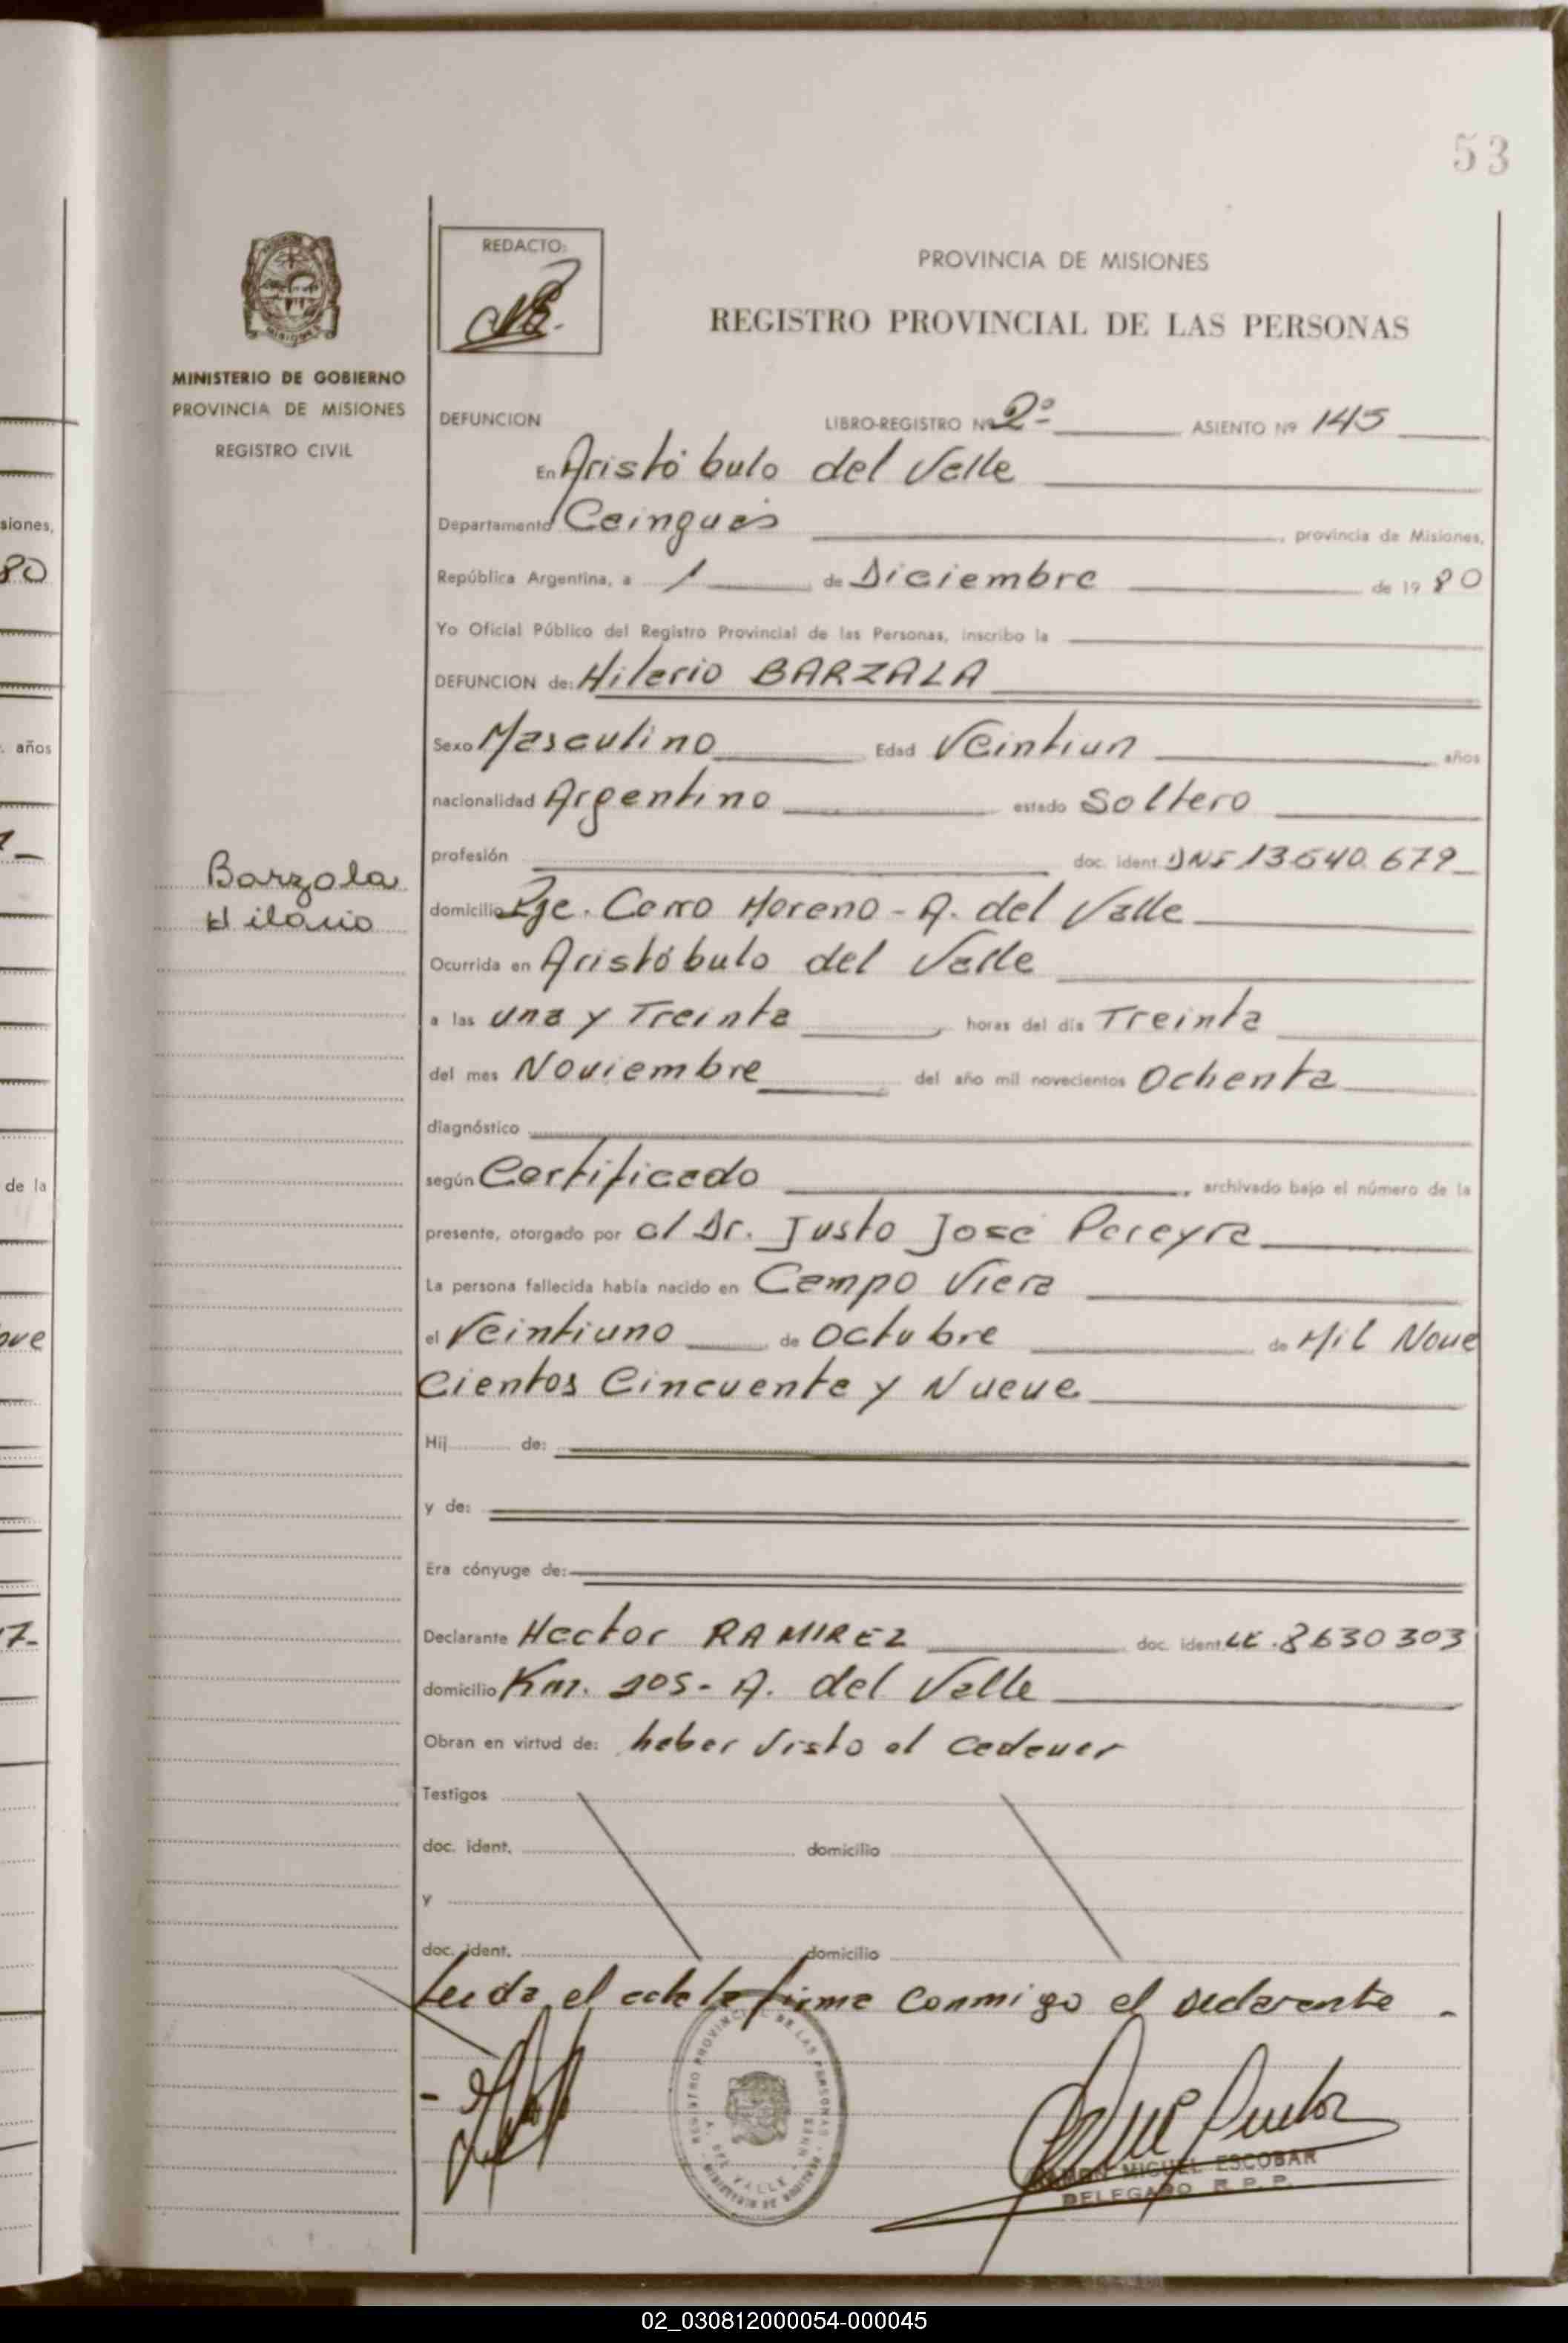 53
REDACTO:
PROVINCIA DE MISIONES
REGISTRO PROVINCIAL DE LAS PERSONAS
MINISTERIO DE GOBIERNO
PROVINCIA DE MISIONES
REGISTRO CIVIL
DEFUNCION LIBRO-REGISTRO Nº 2º ASIENTO Nº 145
En Aristóbulo del Valle
Departamento Cainguas, provincia de Misiones,
siones,
República Argentina, a 1 de Diciembre de 1980
80
Yo Oficial Público del Registro Provincial de las Personas, inscribo la
DEFUNCION de: Hilario BARZALA
Sexo Masculino Edad Veintiun años
años
nacionalidad Argentino estado Soltero
profesión doc. ident. DNI 13.640.679
Barzola
Hilario
domicilio Pje. Cerro Moreno - A. del Valle
Ocurrida en Aristóbulo del Valle
a las una y Treinta, horas del día Treinta
del mes Noviembre del año mil novecientos Ochenta
diagnóstico
según Certificado, archivado bajo el número de la
de la
presente, otorgado por el Dr. Justo José Pereyra
La persona fallecida había nacido en Campo Viera
el Veintiuno de Octubre de Mil Nove
Cientos Cincuenta y Nueve
Hij de:
y de:
Era cónyuge de:
Declarante Hector RAMIREZ doc. ident. LE.8630303
domicilio Km. 205- A. del Valle
Obran en virtud de: haber visto el cadaver
Testigos
doc. ident. domicilio
y
doc. ident. domicilio
Leida el acta la firma conmigo el declarante.
REGISTRO PROVINCIAL DE LAS PERSONAS
A. DEL VALLE
MINISTERIO DE GOBIERNO
RAMON MIGUEL ESCOBAR
DELEGADO R. P. P.
02_030812000054-000045